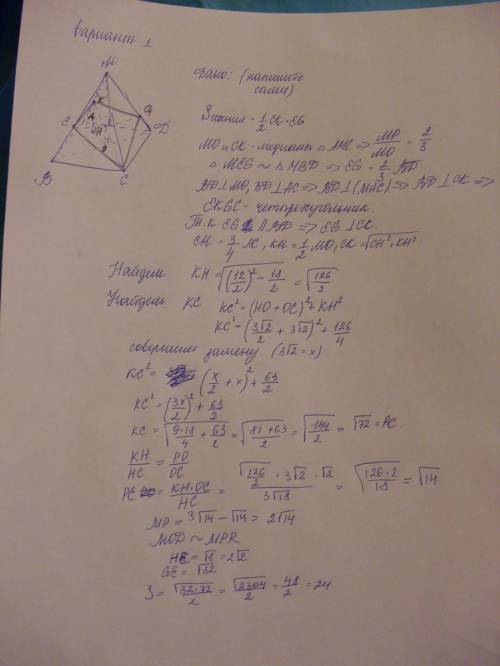 Вариант 1
M
K
E
A
H
P
G
D
B
C
Дано: (напишете
сами)
Sсечения - 1/2 CK · EG
MO и CK - медианы △ AMC ⇒ MP/MO = 2/3
△ MEG ~ △ MBD ⇒ EG = 2/3 BD
BD ⊥ MO, BD ⊥ AC ⇒ BD ⊥ (MAC) ⇒ BD ⊥ CK ⇒
EKGC - четырехугольник.
Т.к EG || BD ⇒ EG ⊥ CK.
CH = 3/4 AC, KH = 1/2 MO, CK = √(CH² + KH²)
Найдем KH = √((12/2)² - 18/2) = √126/2
Найдем KC KC² = (HO + OC)² + KH²
KC² = (3√2/2 + 3√2)² + 126/4
совершим замену (3√2 = x)
KC² = (x/2 + x)² + 63/2
KC² = (3x/2)² + 63/2
KC = √(9·18/4 + 63/2) = √((81+63)/2) = √(144/2) = √72 = AC.
KH/HC = PO/OC
PO = KH·OC/HC = (√126/2 · 3√2 · √2)/3√18 = √(126·2/18) = √14
MP = 3√14 - √14 = 2√14
MOD ~ MPR
HE = √8 = 2√2
GE = √32
S = √(32·72)/2 = √2304/2 = 48/2 = 24